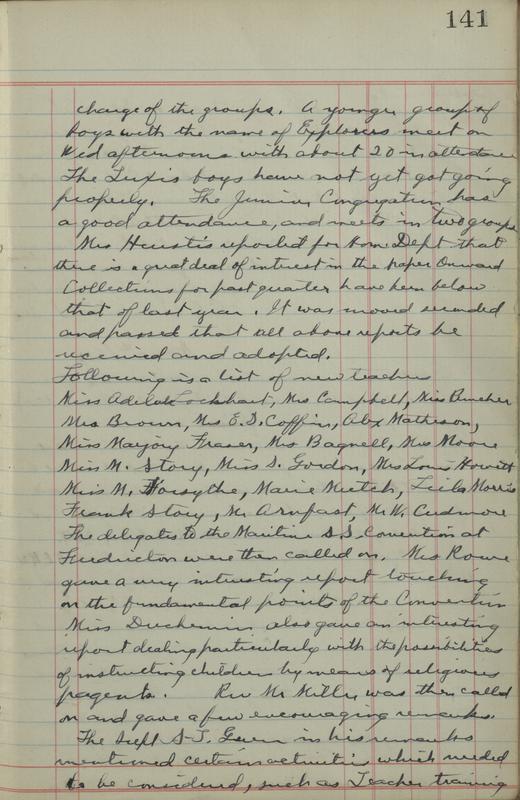 141
charge of the groups. A younger group of
boys with the name of Explorers meet on
Wed afternoons with about 20 in attendance
The Tuxis boys have not yet got going
properly. The Junior Congregation has
a good attendance, and meets in two groups
Mrs Heustis reported for home Dept that
there is a great deal of interest in the paper Onward
Collections for past quarter have been below
that of last year. It was moved seconded
and passed that all above reports be
received and adopted.
Following is a list of new teachers
Miss Lockhart, Mrs Campbell, Miss
Mrs Brown, Mrs E.D. Coffin, Alex Matheson,
Miss Marjory Fraser, Mrs Bagnell, Mrs Moore
Miss M. Story, Miss D. Gordon, Miss Howatt
Miss M. Forsythe, Marie Mutch, Morris
Frank Story, Mr Arnfast, Mr W. Cudmore
The deligates to the Maritime S.S. Convention at
Fredricton were then called on. Mrs Rowe
gave a very intristing report touching
on the fundamental points of the Convention
Miss Duchemin also gave an intristing
report dealing particularly with the possibilities
of instructing children by means of religious
pagents. Rev Mr was then called
on and gave a few encouraging remarks.
The Supt S.T. Green in his remarks
mentioned certain activities which needed
to be considered, such as Teacher training